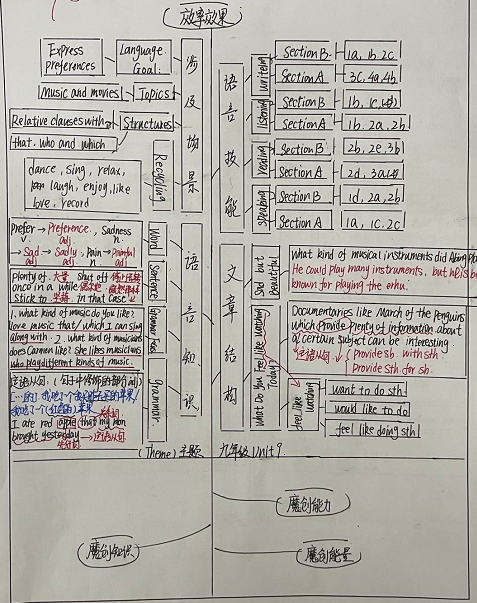 故事效果
Express preferences
Language Goal:
Music and movies
Topics
Relative clauses with
that. who and which
Structures
dance, sing, relax,
laugh, enjoy, like
love, record
Recycling
Prefer → Preference, Sadness
v. n.
→ Sad → Sadly, Pain → Painful
adj n adj
Word
plenty of. 大量 shut off
once in a while 偶尔地
stick to 坚持. in that case
Sentence
1. what kind of music do you like?
I love music that/which I can sing
along with. 2. what kind of musicians
does Carmen like? She likes musicians
who play different kinds of music.
Grammar Focus
定语从句
I ate red apple that my mon
brought yesterday → 定语从句
先行词
grammar
语言知识
(Theme) 主题 九年级 Unit 9.
语言技能
writing
Section B
1a, 1b. 2c
Section A
3c, 4a, 4b
listening
Section B
1b, 1c,
Section A
1b. 2a, 2b
reading
Section B
2b, 2e, 3b
Section A
2d, 3a
speaking
Section B
1d, 2a, 2b
Section A
1a, 1c. 2c
文章结构
Sad but Beautiful
what kind of musical instruments did Abing play
He could play many instruments, but he is be
known for playing the erhu.
What Do You Feel Like Watching Today?
Documentaries like March of the Penguins
which Provide Plenty of information about
a certain subject can be interesting.
定语从句
Provide sb. with sth
Provide sth for sb.
feel like watching
want to do sth
would like to do
feel like doing sth
魔创能力
魔创知识
魔创能量